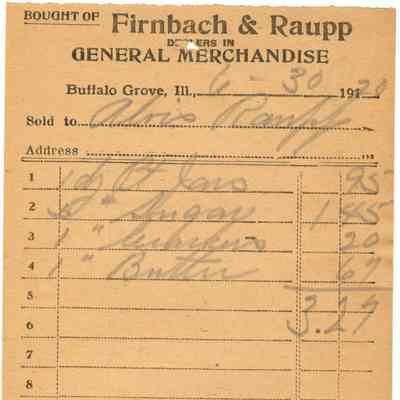 BOUGHT OF Firnbach & Raupp
DEALERS IN
GENERAL MERCHANDISE
Buffalo Grove, Ill., 6 - 30 191 20
Sold to Alois Raupp
Address
1 1 dz Pt Jars 95
2 5 " Sugar 1 45
3 1 " Crackers 20
4 1 " Butter 67
5
6 3.27
7
8